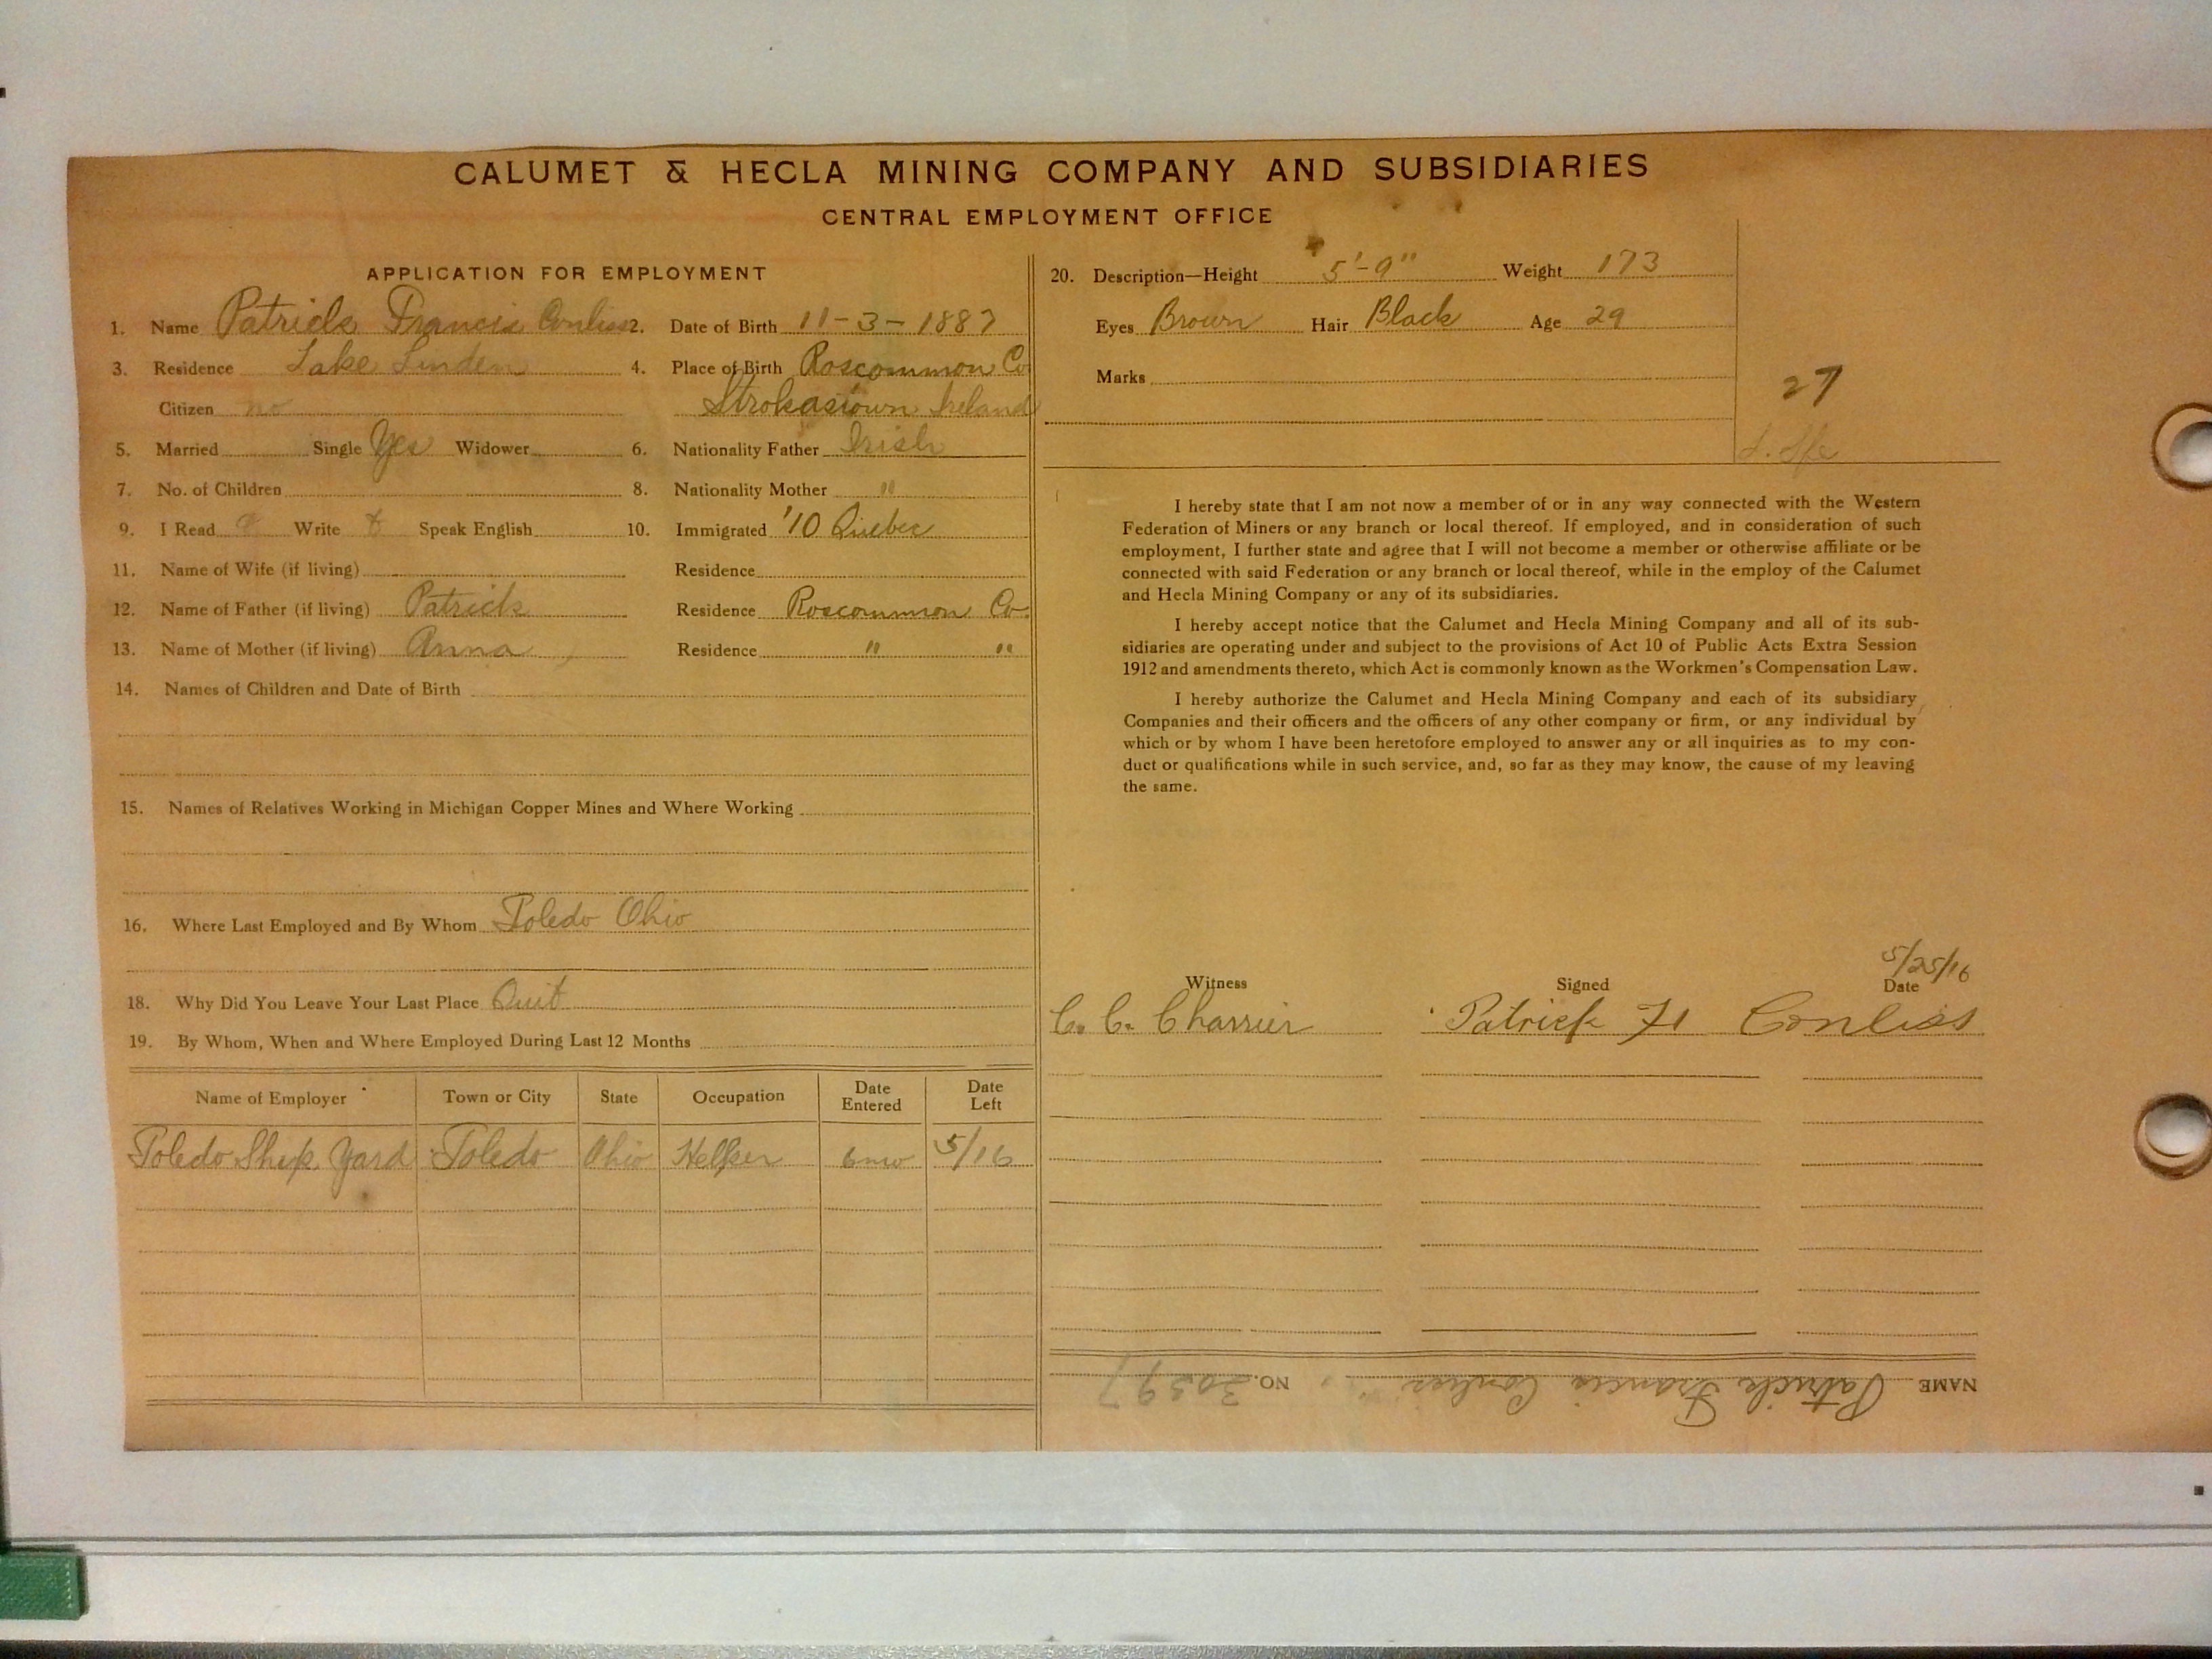 CALUMET & HECLA MINING COMPANY AND SUBSIDIARIES
CENTRAL EMPLOYMENT OFFICE
APPLICATION FOR EMPLOYMENT
1. Name Patrick Francis Conliss 2. Date of Birth 11-3-1887
3. Residence Lake Linden 4. Place of Birth Roscommon Co
Citizen no Strokastown Ireland
5. Married Single Yes Widower 6. Nationality Father Irish
7. No. of Children 8. Nationality Mother "
9. I Read Write Speak English 10. Immigrated '10 Quebec
11. Name of Wife (if living) Residence
12. Name of Father (if living) Patrick Residence Roscommon Co.
13. Name of Mother (if living) Anna Residence " "
14. Names of Children and Date of Birth
15. Names of Relatives Working in Michigan Copper Mines and Where Working
16. Where Last Employed and By Whom Toledo Ohio
18. Why Did You Leave Your Last Place Quit
19. By Whom, When and Where Employed During Last 12 Months
Name of Employer Town or City State Occupation Date Entered Date Left
Toledo Ship Yard Toledo Ohio Helper 6 mo 5/16
20. Description—Height 5'-9" Weight 173
Eyes Brown Hair Black Age 29
Marks
27
I hereby state that I am not now a member of or in any way connected with the Western
Federation of Miners or any branch or local thereof. If employed, and in consideration of such
employment, I further state and agree that I will not become a member or otherwise affiliate or be
connected with said Federation or any branch or local thereof, while in the employ of the Calumet
and Hecla Mining Company or any of its subsidiaries.
I hereby accept notice that the Calumet and Hecla Mining Company and all of its sub-
sidiaries are operating under and subject to the provisions of Act 10 of Public Acts Extra Session
1912 and amendments thereto, which Act is commonly known as the Workmen's Compensation Law.
I hereby authorize the Calumet and Hecla Mining Company and each of its subsidiary
Companies and their officers and the officers of any other company or firm, or any individual by
which or by whom I have been heretofore employed to answer any or all inquiries as to my con-
duct or qualifications while in such service, and, so far as they may know, the cause of my leaving
the same.
5/25/16
Witness Signed Date
C. C. Charrier Patrick F Conliss
NAME Patrick Francis Conliss NO. 30597